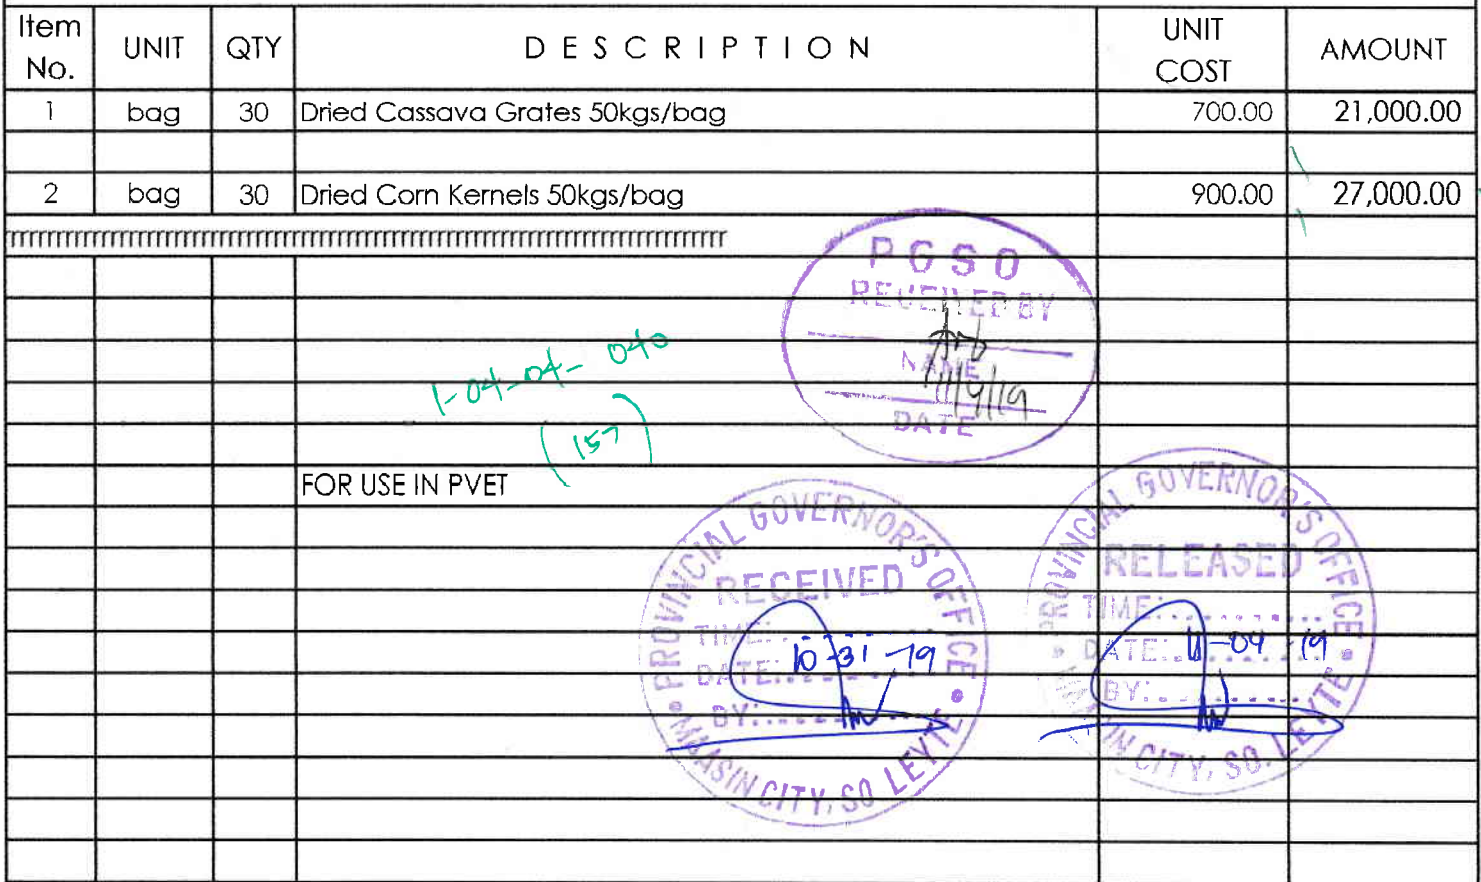 Item No. UNIT QTY DESCRIPTION UNIT COST AMOUNT
1 bag 30 Dried Cassava Grates 50kgs/bag 700.00 21,000.00
2 bag 30 Dried Corn Kernels 50kgs/bag 900.00 27,000.00
PGSO
RECEIVED BY
NAME
11/4/19
DATE
1-04-04-040
(157)
FOR USE IN PVET
PROVINCIAL GOVERNOR'S OFFICE
RECEIVED
TIME:
DATE: 10-31-19
BY:
MAASIN CITY, SO. LEYTE
PROVINCIAL GOVERNOR'S OFFICE
RELEASED
TIME:
DATE: 11-04-19
BY:
MAASIN CITY, SO. LEYTE